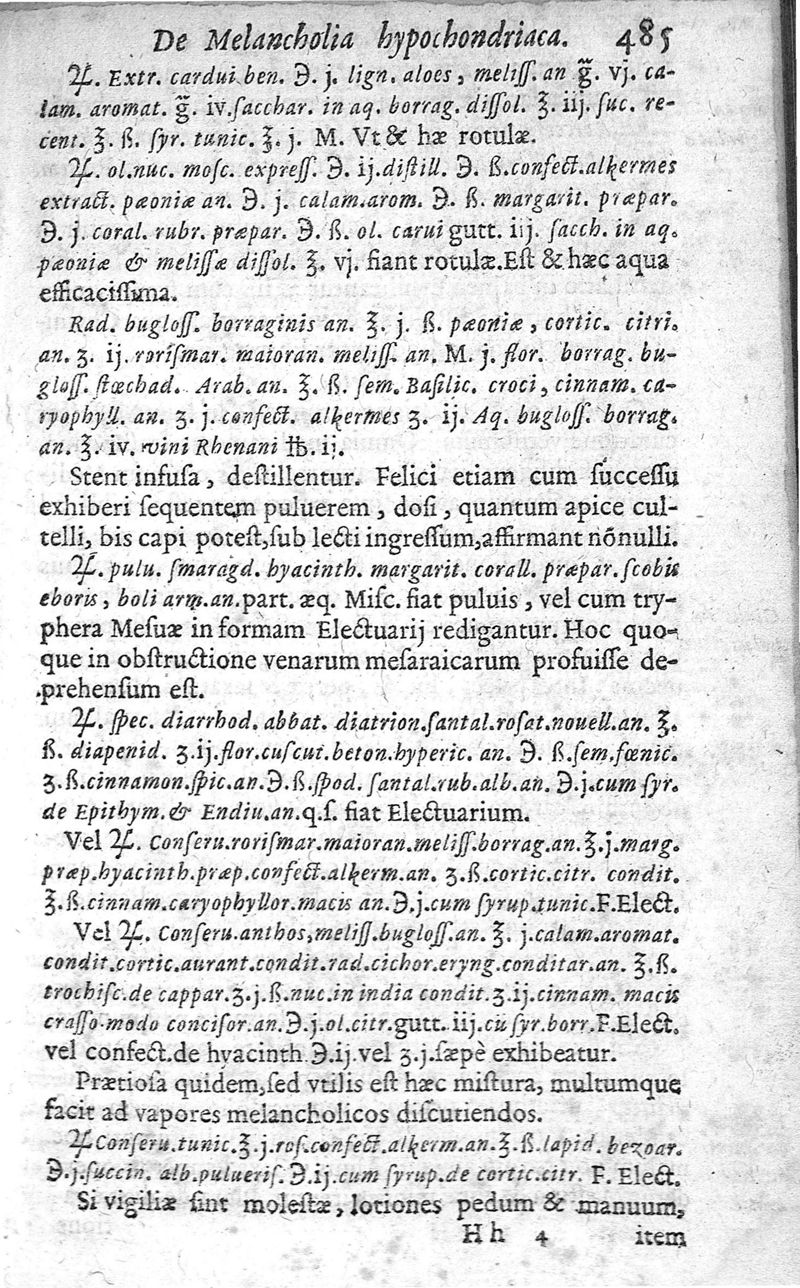 De Melancholia hypochondriaca. 485
℞. Extr. cardui ben. ℈. j. lign. aloes, meliſſ. an g̃. vj. ca-
lam. aromat. g̃. iv. ſacchar. in aq. borrag. diſſol. ℥. iij. ſuc. re-
cent. ℥. ß. ſyr. tunic. ℥. j. M. Vt & hæ rotulæ.
℞. ol. nuc. moſc. expreſſ. ℈. ij. diſtill. ℈. ß. confect. alkermes
extract. pæoniæ an. ℈. j. calam. arom. ℈. ß. margarit. præpar.
℈. j. coral. rubr. præpar. ℈. ß. ol. carui gutt. iij. ſacch. in aq.
pæoniæ & meliſſæ diſſol. ℥. vj. fiant rotulæ. Eſt & hæc aqua
efficaciſſima.
Rad. bugloſſ. borraginis an. ℥. j. ß. pæoniæ, cortic. citri.
an. ʒ. ij. roriſmar. maioran. meliſſ. an. M. j. flor. borrag. bu-
gloſſ. ſtœchad. Arab. an. ℥. ß. ſem. Baſilic. croci, cinnam. ca-
ryophyll. an. ʒ. j. confect. alkermes ʒ. ij. Aq. bugloſſ. borrag.
an. ℥. iv. vini Rhenani ℔. ij.
Stent infuſa, deſtillentur. Felici etiam cum ſucceſſu
exhiberi ſequentem puluerem, doſi, quantum apice cul-
telli, bis capi poteſt, ſub lecti ingreſſum, affirmant nōnulli.
℞. pulu. ſmaragd. hyacinth. margarit. corall. præpar. ſcobis
eboris, boli arm. an. part. æq. Miſc. fiat puluis, vel cum try-
phera Meſuæ in formam Electuarij redigantur. Hoc quo-
que in obſtructione venarum meſaraicarum profuiſſe de-
prehenſum eſt.
℞. ſpec. diarrhod. abbat. diatrion. ſantal. roſat. nouell. an. ℥.
ß. diapenid. ʒ. ij. flor. cuſcut. beton. hyperic. an. ℈. ß. ſem. fœnic.
ʒ. ß. cinnamon. ſpic. an. ℈. ß. ſpod. ſantal. rub. alb. an. ℈. j. cum ſyr.
de Epithym. & Endiu. an. q. ſ. fiat Electuarium.
Vel ℞. Conſeru. roriſmar. maioran. meliſſ. borrag. an. ℥. j. marg.
præp. hyacinth. præp. confect. alkerm. an. ʒ. ß. cortic. citr. condit.
℥. ß. cinnam. caryophyllor. macis an. ℈. j. cum ſyrup. tunic. F. Elect.
Vel ℞. Conſeru. anthos, meliſſ. bugloſſ. an. ℥. j. calam. aromat.
condit. cortic. aurant. condit. rad. cichor. eryng. conditar. an. ℥. ß.
trochiſc. de cappar. ʒ. j. ß. nuc. in india condit. ʒ. ij. cinnam. macis
craſſo modo conciſor. an. ℈. j. ol. citr. gutt. iij. cū ſyr. borr. F. Elect.
vel confect. de hyacinth. ℈. ij. vel ʒ. j. ſæpè exhibeatur.
Prætioſa quidem, ſed vtilis eſt hæc miſtura, multumque
facit ad vapores melancholicos diſcutiendos.
℞ Conſeru. tunic. ℥. j. roſ. confect. alkerm. an. ℥. ß. lapid. bezoar.
℈. j. ſuccin. alb. pulueriſ. ℈. ij. cum ſyrup. de cortic. citr. F. Elect.
Si vigiliæ ſint moleſtæ, lotiones pedum & manuum,
H h 4 item